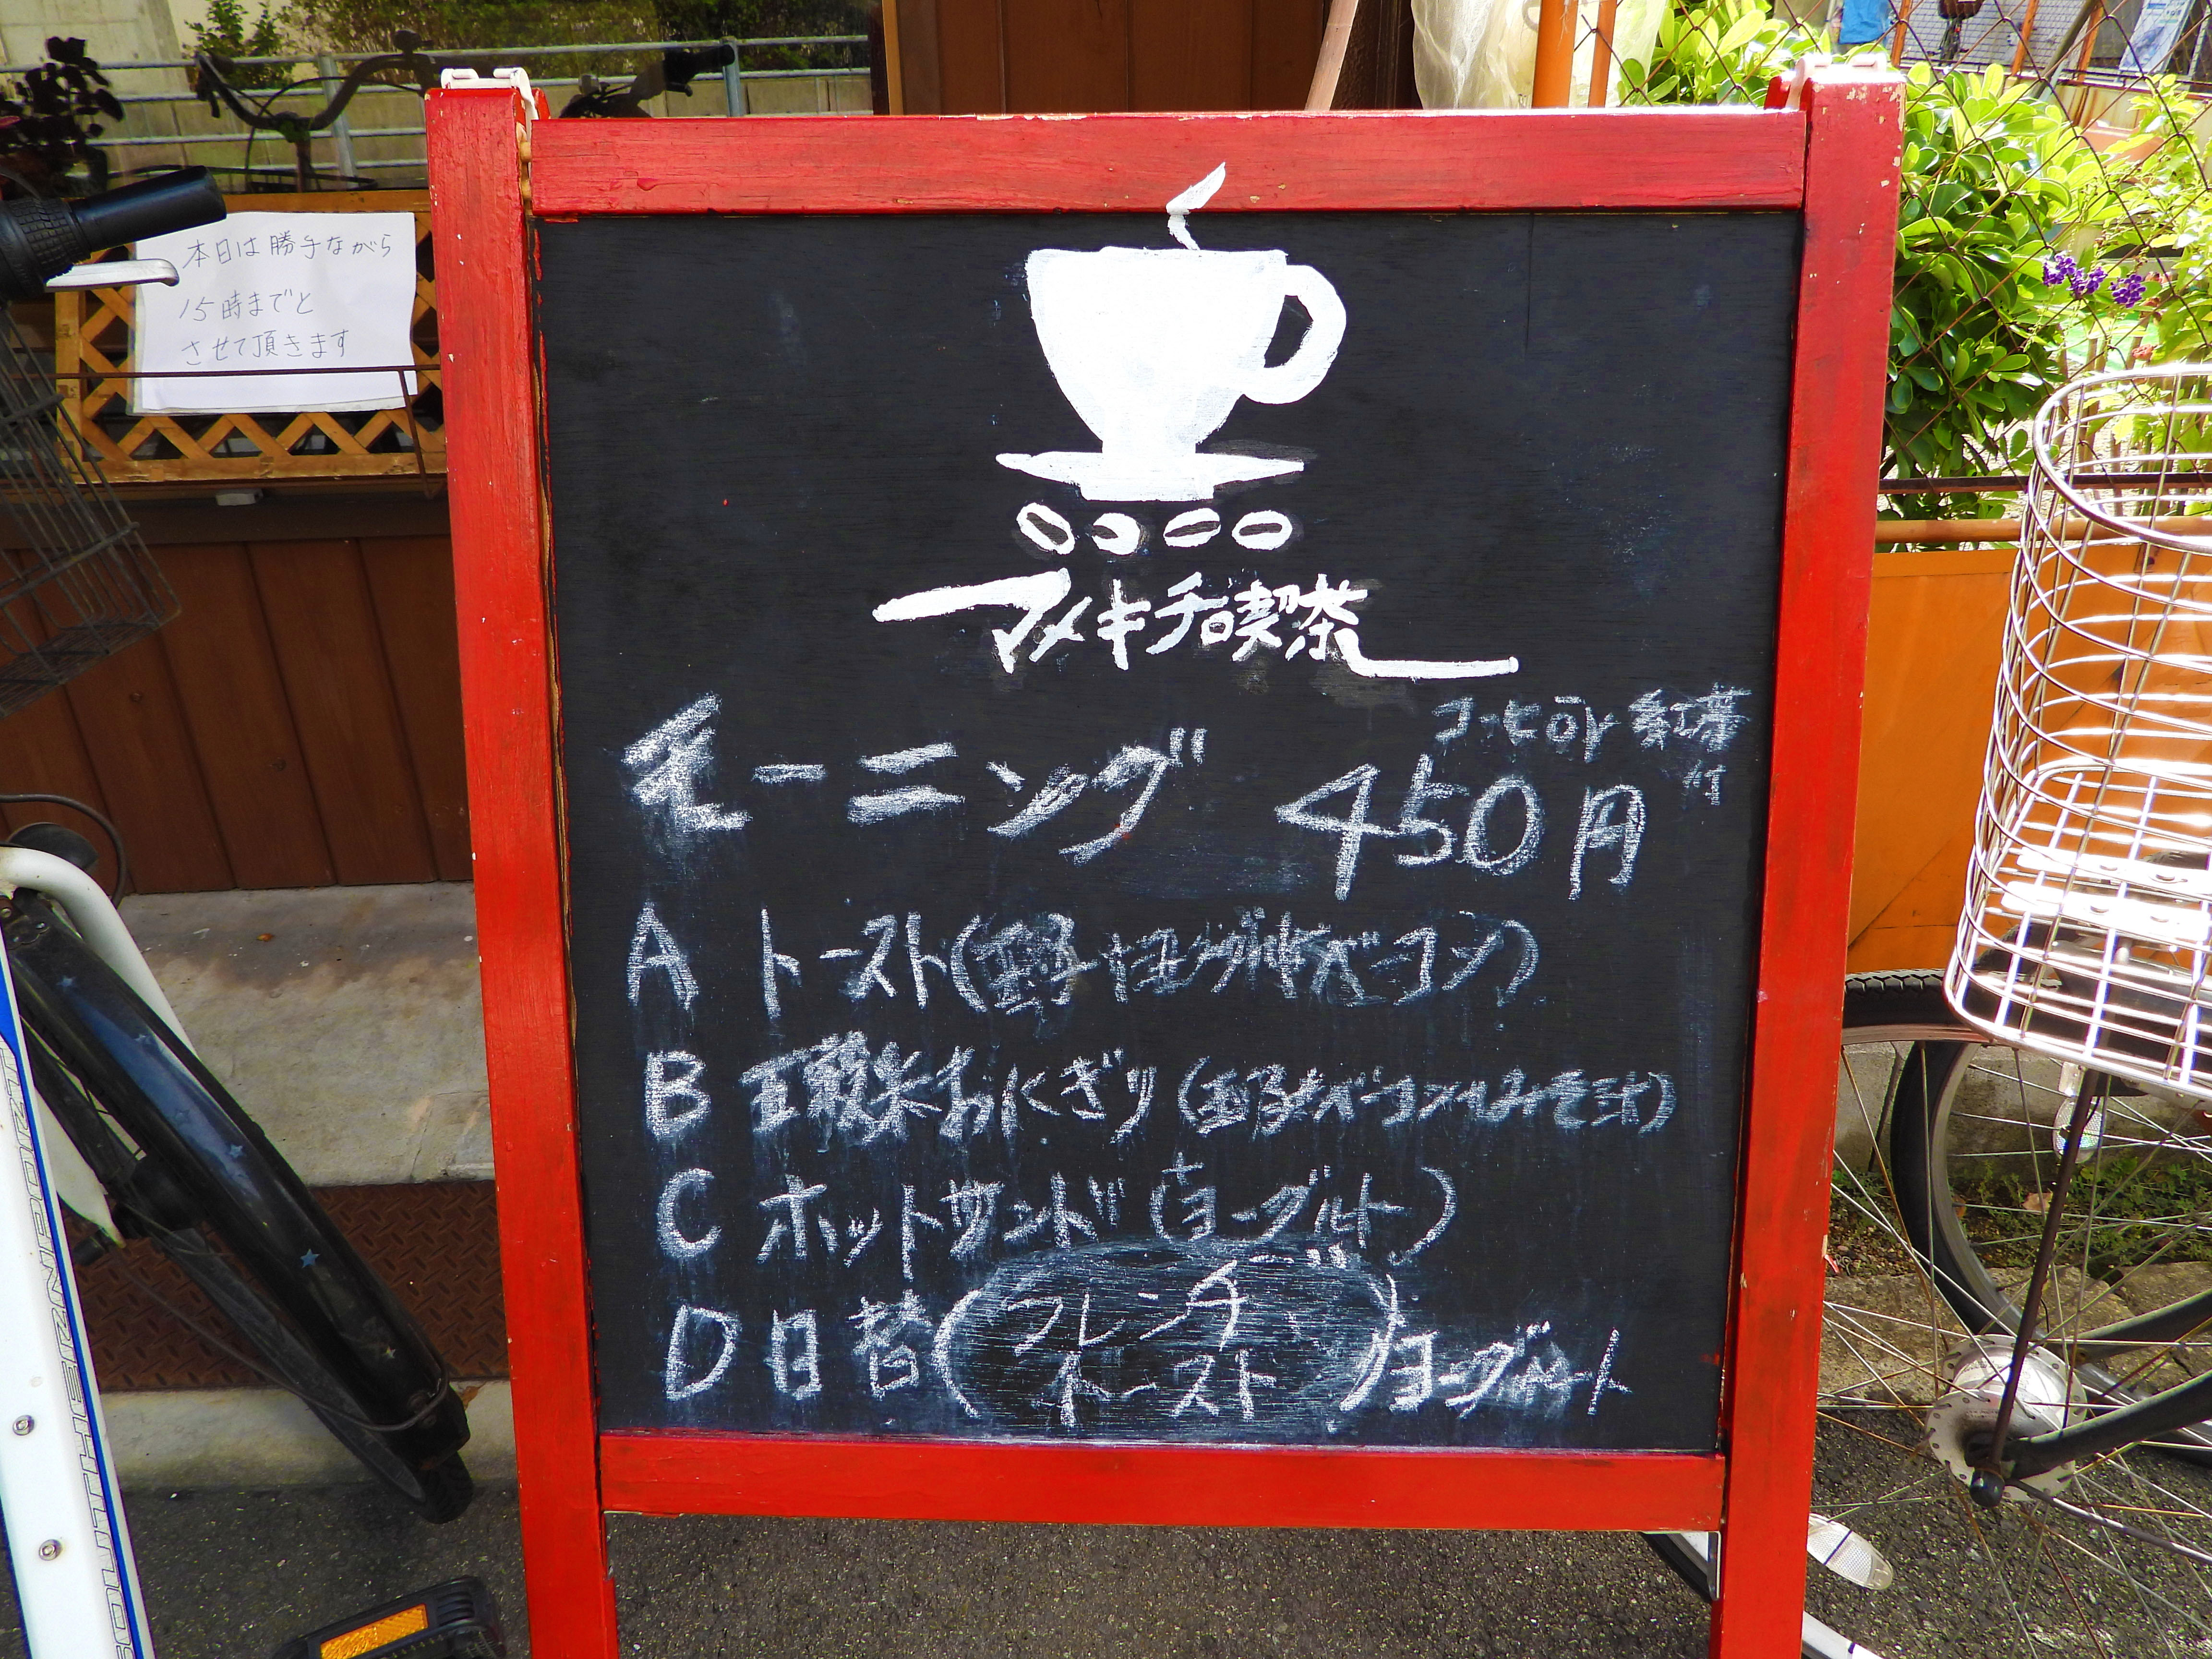 本日は勝手ながら
15時までと
させて頂きます
マメキチ喫茶
コーヒor紅茶
付
モーニング 450円
A トースト(玉子 ベーコン)
B 玉穀米おにぎり(玉子 ベーコン みそ汁)
C ホットサンド(ヨーグルト)
D 日替(フレンチトースト)ヨーグルト
SOUTHERNPORT